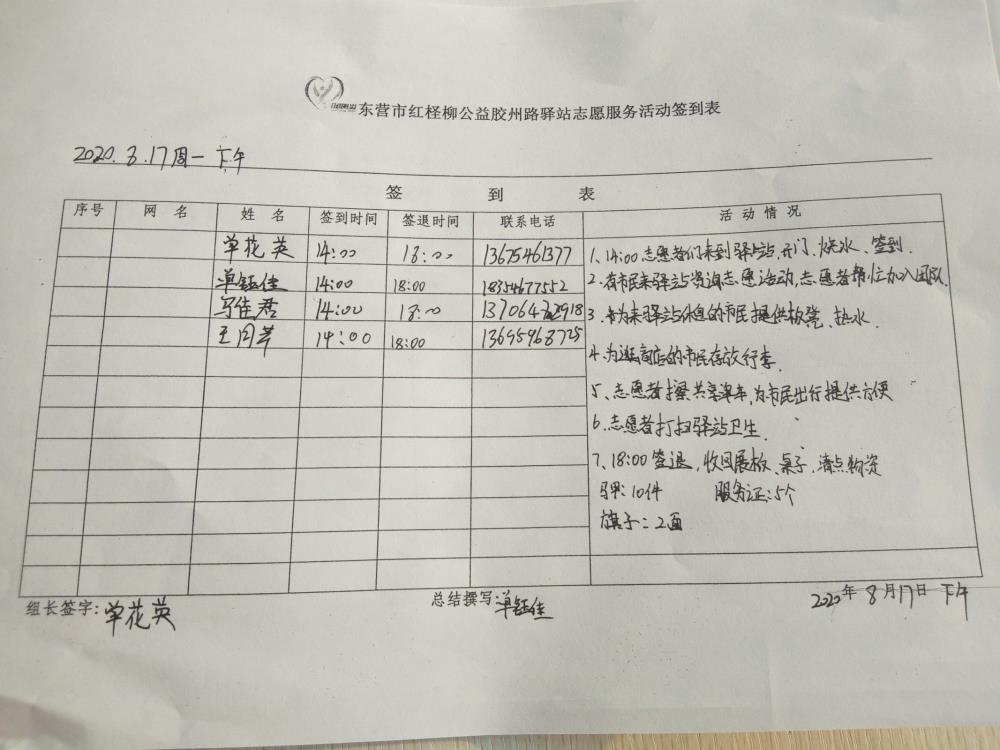 东营市红柽柳公益胶州路驿站志愿服务活动签到表
2020.8.17周一 下午
签 到 表
序号 网 名 姓 名 签到时间 签退时间 联系电话 活 动 情 况
单花英 14:00 18:00 13675461377
单钰佳 14:00 18:00 18354677552
马佳君 14:00 18:00
王同芹 14:00 18:00 13695968725
1、14:00志愿者们来到驿站,开门、烧水、签到.
2.有市民来驿站资询志愿活动,志愿者帮忙加入团队
3.为来驿站休息的市民提供板凳、热水.
4.为逛商店的市民存放行李.
5、志愿者擦共享单车,为市民出行提供方便
6.志愿者打扫驿站卫生.
7、18:00签退,收回展板、桌子,清点物资
马甲:10件 服务证:5个
旗子:2面
组长签字:单花英 总结撰写:单钰佳 2020年8月17日 下午